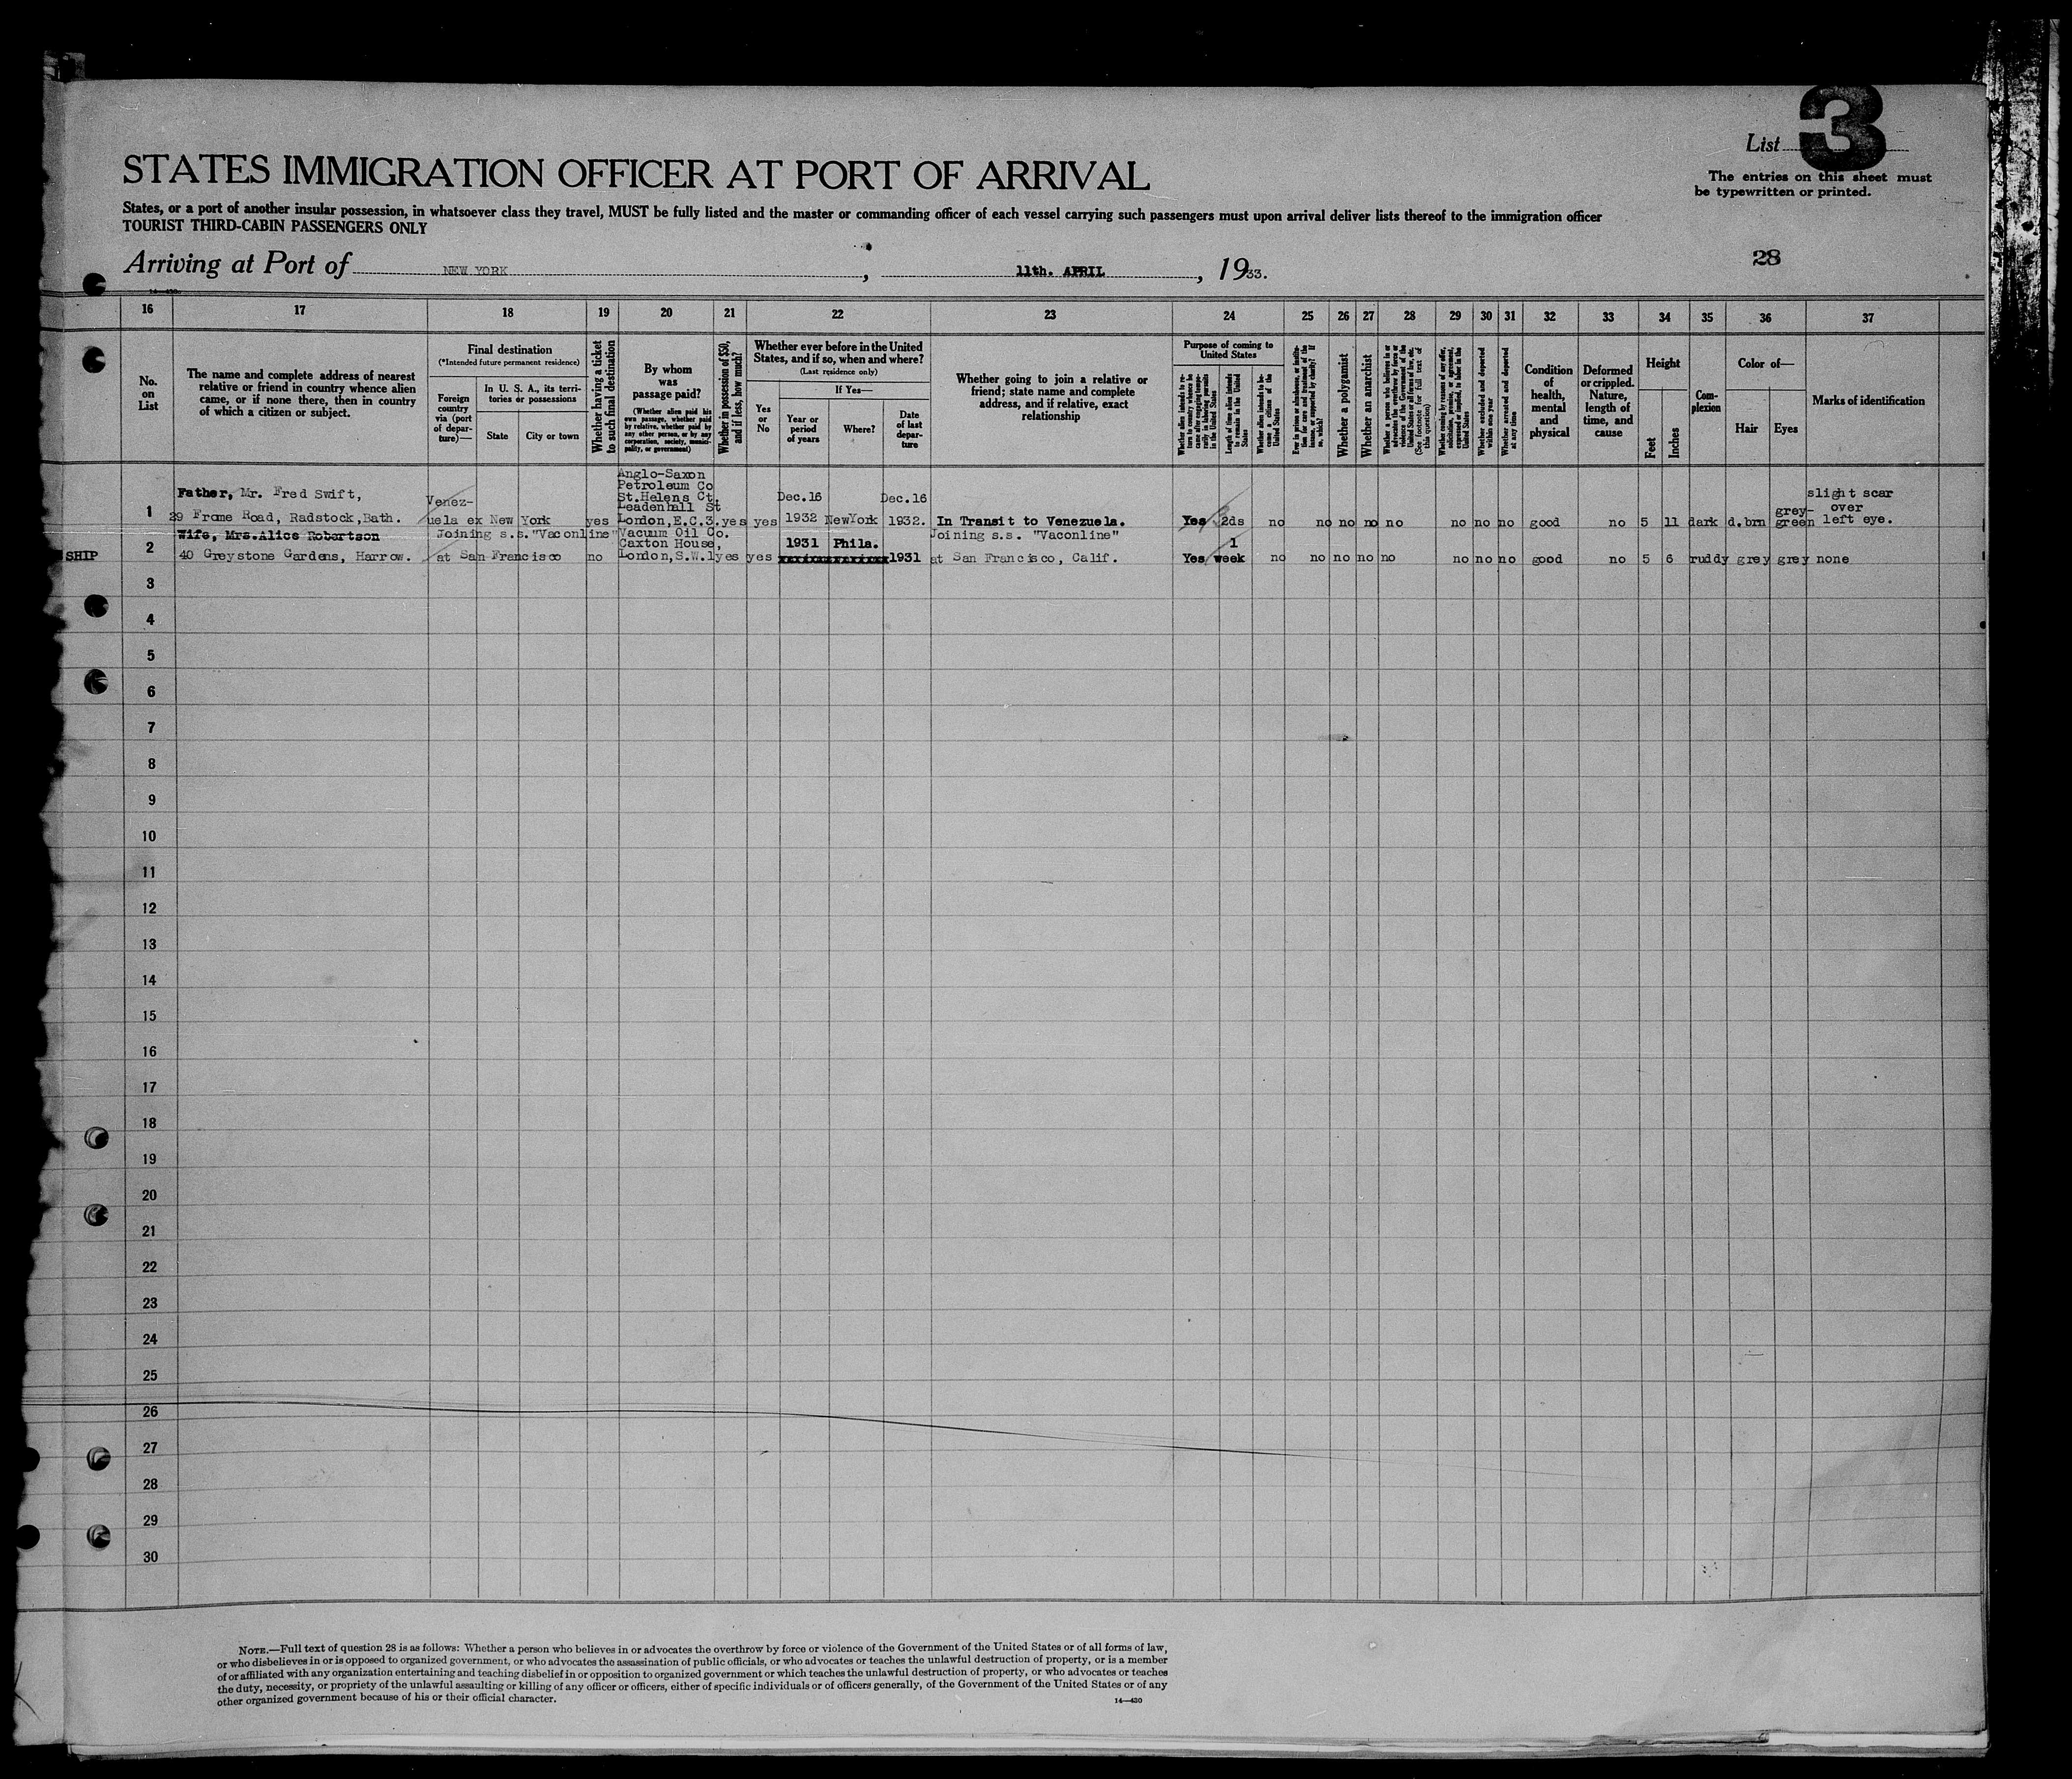 List 3
STATES IMMIGRATION OFFICER AT PORT OF ARRIVAL
The entries on this sheet must
be typewritten or printed.
States, or a port of another insular possession, in whatsoever class they travel, MUST be fully listed and the master or commanding officer of each vessel carrying such passengers must upon arrival deliver lists thereof to the immigration officer
TOURIST THIRD-CABIN PASSENGERS ONLY
28
Arriving at Port of NEW YORK, 11th. APRIL, 1933.
16 17 18 19 20 21 22 23 24 25 26 27 28 29 30 31 32 33 34 35 36 37
No.
on
List
The name and complete address of nearest
relative or friend in country whence alien
came, or if none there, then in country
of which a citizen or subject.
Final destination
(*Intended future permanent residence)
Foreign
country
via (port
of depar-
ture)—
In U. S. A., its terri-
tories or possessions
State
City or town
Whether having a ticket
to such final destination
By whom
was
passage paid?
(Whether alien paid his
own passage, whether paid
by relative, whether paid by
any other person, or by any
corporation, society, munici-
pality, or government)
Whether in possession of $50,
and if less, how much?
Whether ever before in the United
States, and if so, when and where?
(Last residence only)
Yes
or
No
If Yes—
Year or
period
of years
Where?
Date
of last
depar-
ture
Whether going to join a relative or
friend; state name and complete
address, and if relative, exact
relationship
Purpose of coming to
United States
Whether alien intends to re-
turn to country whence he
came after engaging tempo-
rarily in laboring pursuits
in the United States
Length of time alien intends
to remain in the United
States
Whether alien intends to be-
come a citizen of the
United States
Ever in prison or almshouse, or institu-
tion for care and treatment of the
insane, or supported by charity? If
so, which?
Whether a polygamist
Whether an anarchist
Whether a person who believes in or
advocates the overthrow by force or
violence of the Government of the
United States or all forms of law, etc.
(See footnote for full text of
this question)
Whether coming by reason of any offer,
solicitation, promise, or agreement,
expressed or implied, to labor in the
United States
Whether excluded and deported
within one year
Whether arrested and deported
at any time
Condition
of
health,
mental
and
physical
Deformed
or crippled.
Nature,
length of
time, and
cause
Height
Feet
Inches
Com-
plexion
Color of—
Hair
Eyes
Marks of identification
Anglo-Saxon
Petroleum Co
Father, Mr. Fred Swift, Venez- St.Helens Ct, Dec.16 Dec.16 slight scar
Leadenhall St grey- over
1 29 Frome Road, Radstock,Bath. uela ex New York yes London,E.C.3. yes yes 1932 NewYork 1932. In Transit to Venezuela. Yes 2ds no no no no no no no no good no 5 11 dark d.brn green left eye.
Wife, Mrs.Alice Robertson Joining s.s."Vaconline" Vacuum Oil Co. Joining s.s. "Vaconline"
2 Caxton House, 1931 Phila. 1
SHIP 40 Greystone Gardens, Harrow. at San Francisco no London,S.W.1 yes yes 1931 at San Francisco, Calif. Yes week no no no no no no no no good no 5 6 ruddy grey grey none
3
4
5
6
7
8
9
10
11
12
13
14
15
16
17
18
19
20
21
22
23
24
25
26
27
28
29
30
NOTE.—Full text of question 28 is as follows: Whether a person who believes in or advocates the overthrow by force or violence of the Government of the United States or of all forms of law,
or who disbelieves in or is opposed to organized government, or who advocates the assassination of public officials, or who advocates or teaches the unlawful destruction of property, or is a member
of or affiliated with any organization entertaining and teaching disbelief in or opposition to organized government or which teaches the unlawful destruction of property, or who advocates or teaches
the duty, necessity, or propriety of the unlawful assaulting or killing of any officer or officers, either of specific individuals or of officers generally, of the Government of the United States or of any
other organized government because of his or their official character.
14—430